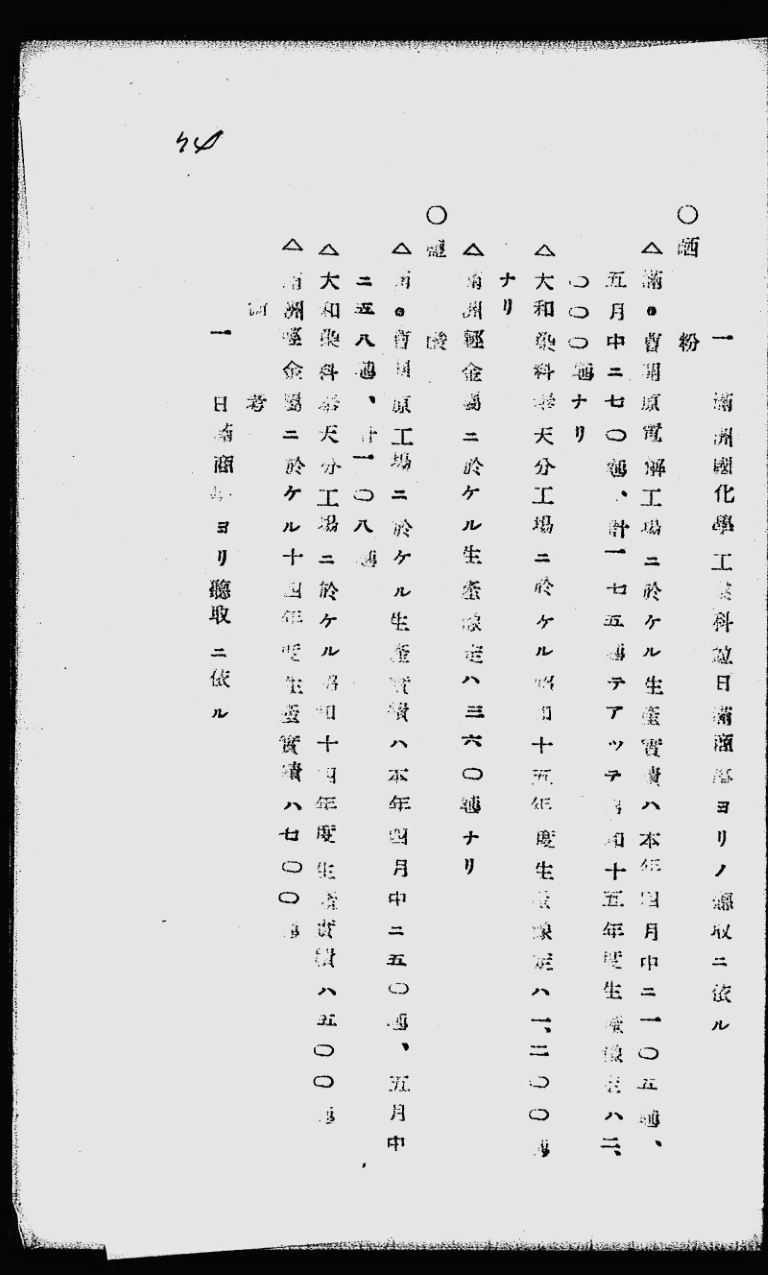 一 滿洲國化學工業科竝日滿商事ヨリノ聽取ニ依ル
〇晒粉
△滿曹開原電解工場ニ於ケル生產實績ハ本年四月中ニ一〇五瓲、
五月中ニ七〇瓲、計一七五瓲テアツテ昭和十五年度生產豫定ハ二、
〇〇〇瓲ナリ
△大和染料奉天分工場ニ於ケル昭和十五年度生產豫定ハ一、二〇〇瓲
ナリ
△滿洲輕金屬ニ於ケル生產豫定ハ三六〇瓲ナリ
〇鹽酸
△滿曹開原工場ニ於ケル生產實績ハ本年四月中ニ五〇瓲、五月中
ニ五八瓲、計一〇八瓲
△大和染料奉天分工場ニ於ケル昭和十四年度生產實績ハ五〇〇瓲
△滿洲輕金屬ニ於ケル十四年度生產實績ハ七〇〇瓲
備考
一 日滿商事ヨリ聽取ニ依ル